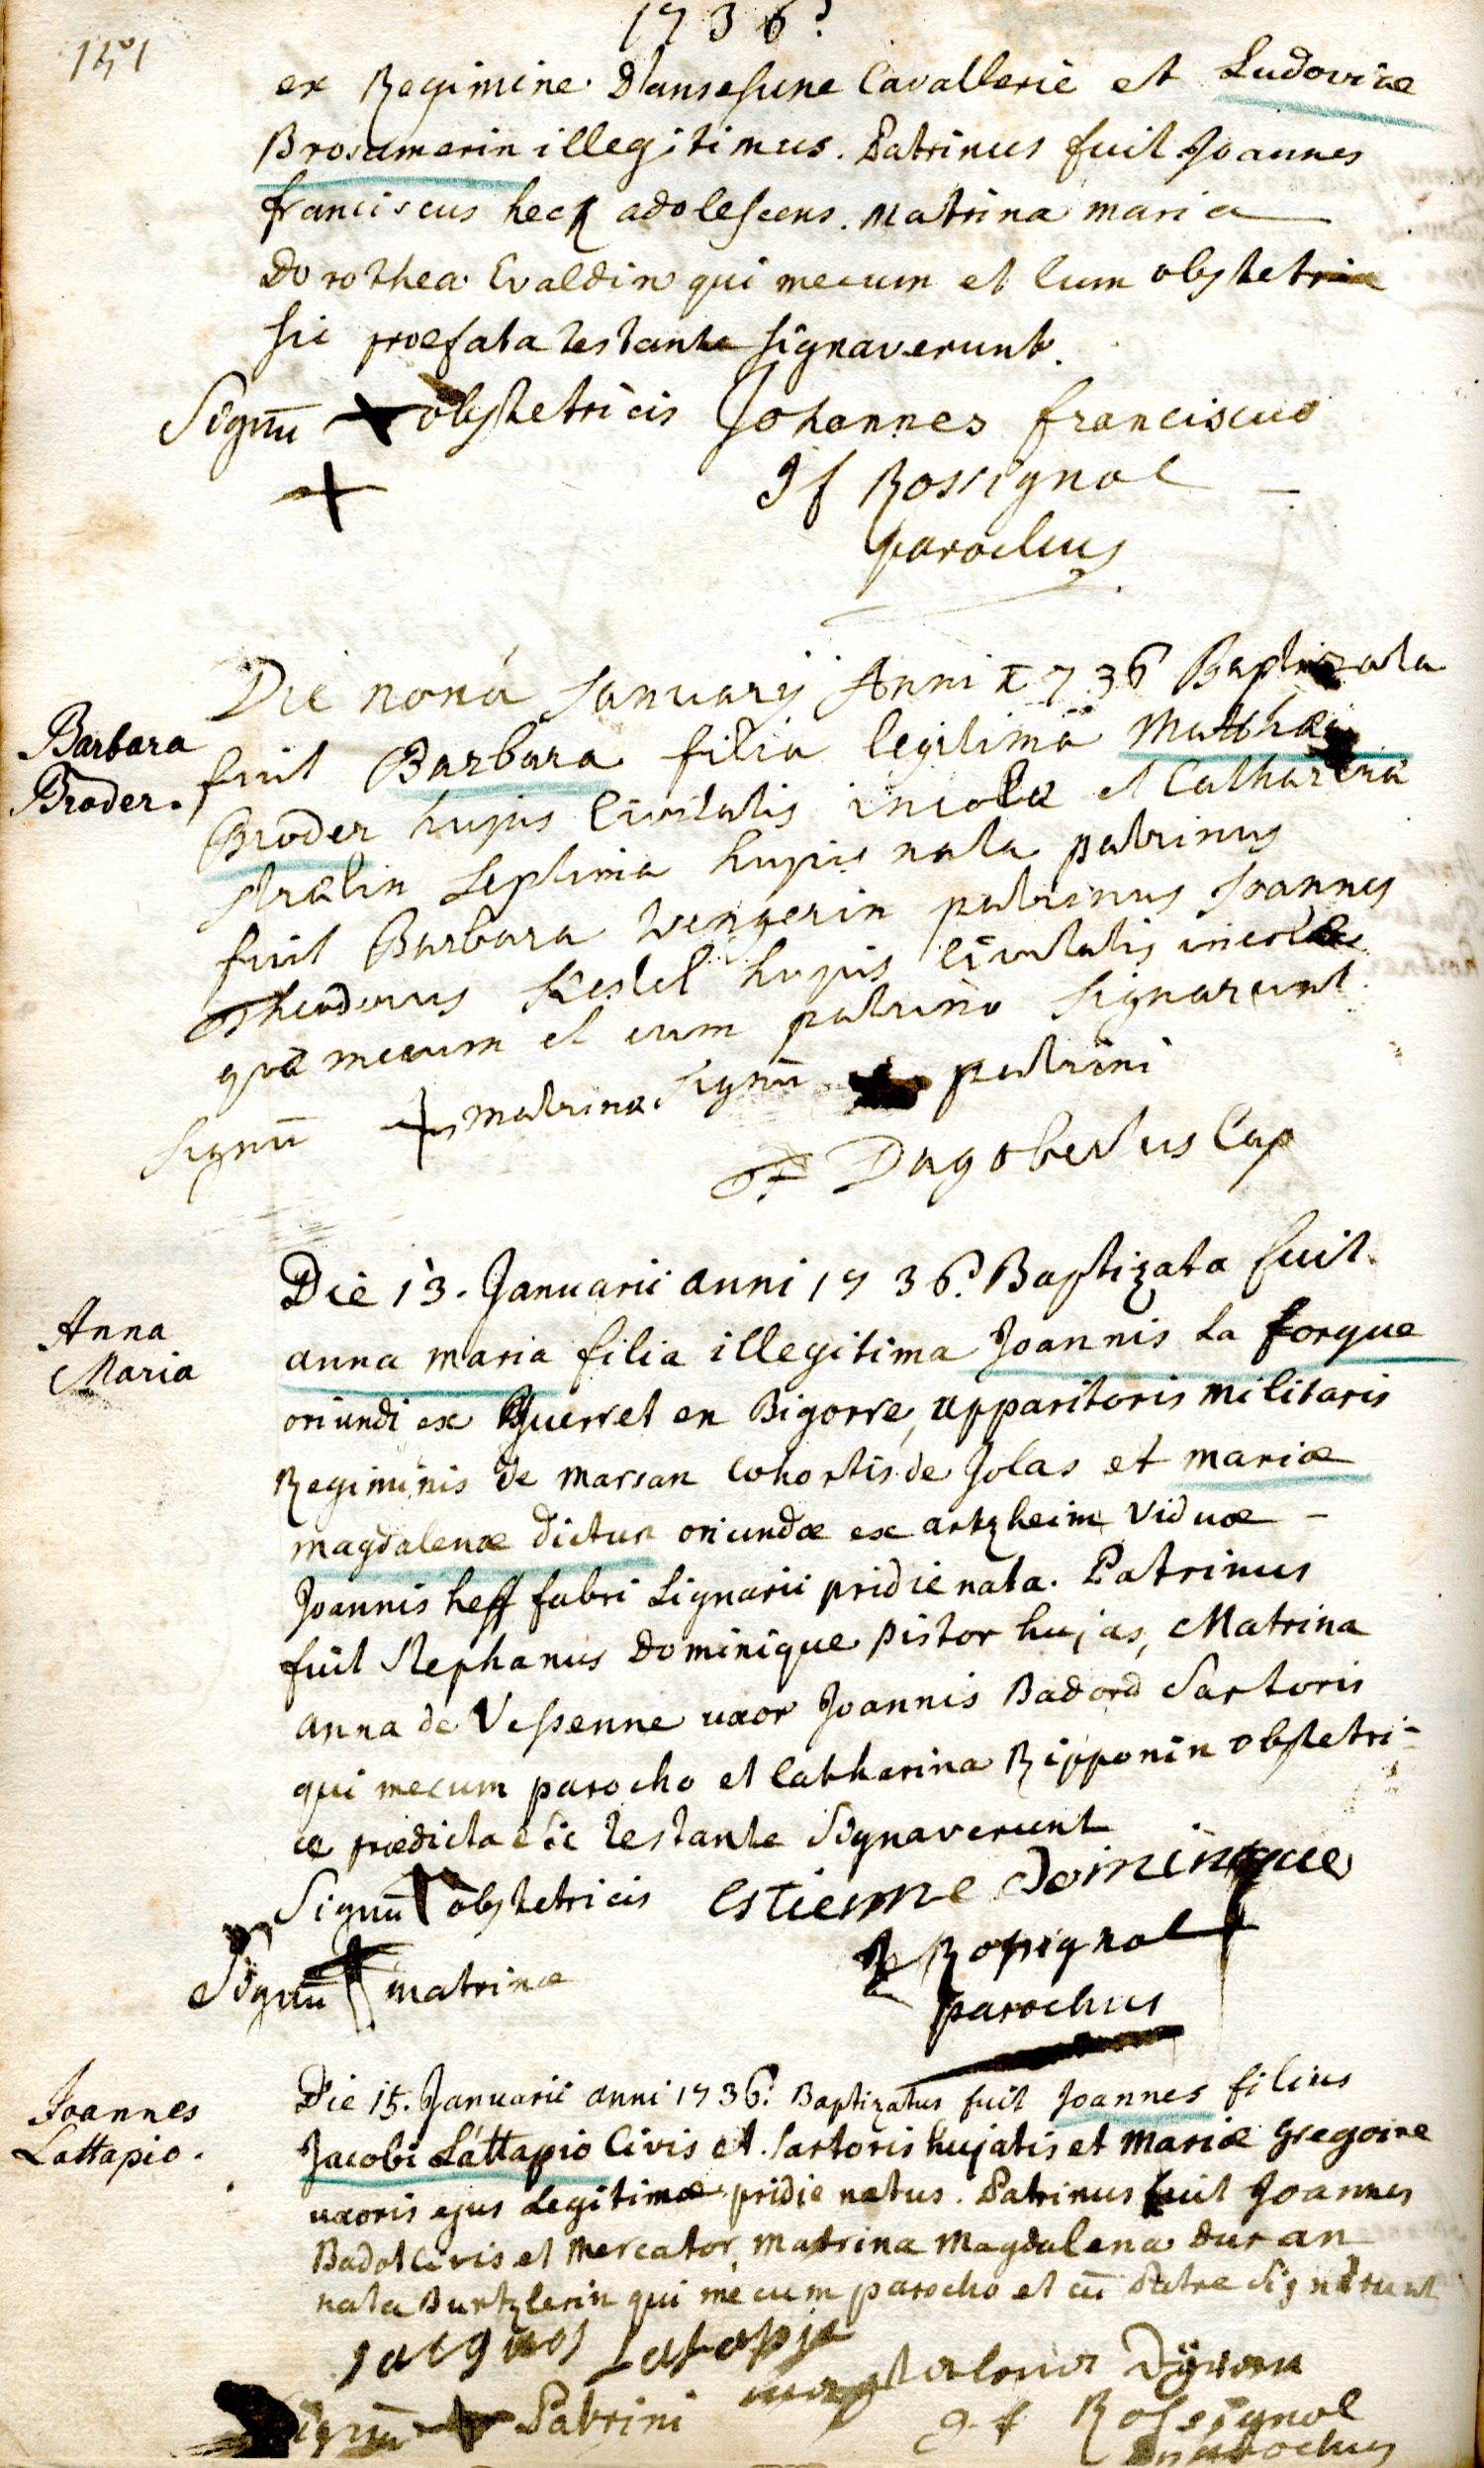 1736.
151
ex Regimine Dansesune Cavallerie et Ludovicæ
Brosamerin illegitimus. Patrinus fuit Joannes
franciscus heck adolescens. Matrina maria
Dorothea Evaldin qui mecum et cum obstetrice
sic præfata testante signaverunt.
Signū + obstetricis Johannes franciscus
+ J f Rossignol
parochus
Die nona Januarij Anni 1736 Baptizata
Barbara
Broder.
fuit Barbara filia legitima Matthæi
Broder hujus Civitatis incolæ et Catharina
strælin septima hujus nata patrinus
fuit Barbara Wengerin patrinus Joannes
Theodorus Kestel hujus Civitatis incolæ
qui mecum et cum patrino signarunt
Signū + matrinæ Signū + patrini
F Dagobertus Cap
Die 13. Januarii anni 1736. Baptizata fuit
Anna
Maria
anna maria filia illegitima Joannis La forgue
oriundi ex Guerret en Bigorre, apparitoris militaris
Regiminis de Marsan Cohortis de Jolas et mariæ
magdalenæ dictun oriundæ ex artzheim viduæ –
Joannis heff fabri Lignarii pridie nata. Patrinus
fuit Stephanus Dominique pistor hujas, Matrina
anna de Vessenne uxor Joannis Badord Sartoris
qui mecum parocho et Catharina Ripponin obstetri-
ce prædicta sic testante Signaverunt
Signū obstetricis estienne dominique
Signū + matrinæ Rossignol
parochus
Joannes
Lattapio.
Die 15. Januarii anni 1736. Baptizatus fuit Joannes filius
Jacobi Lattapio Civis et Sartoris hujatis et Mariæ Gregoire
uxoris ejus Legitimæ pridie natus. Patrinus fuit Joannes
Badot Civis et Mercator, Matrina Magdalena duran
nata Burtzlerin qui mecum parocho et cū Patre Signarunt
Jacques Latapie
Signū + Patrini
J. f Rossignol
parochus